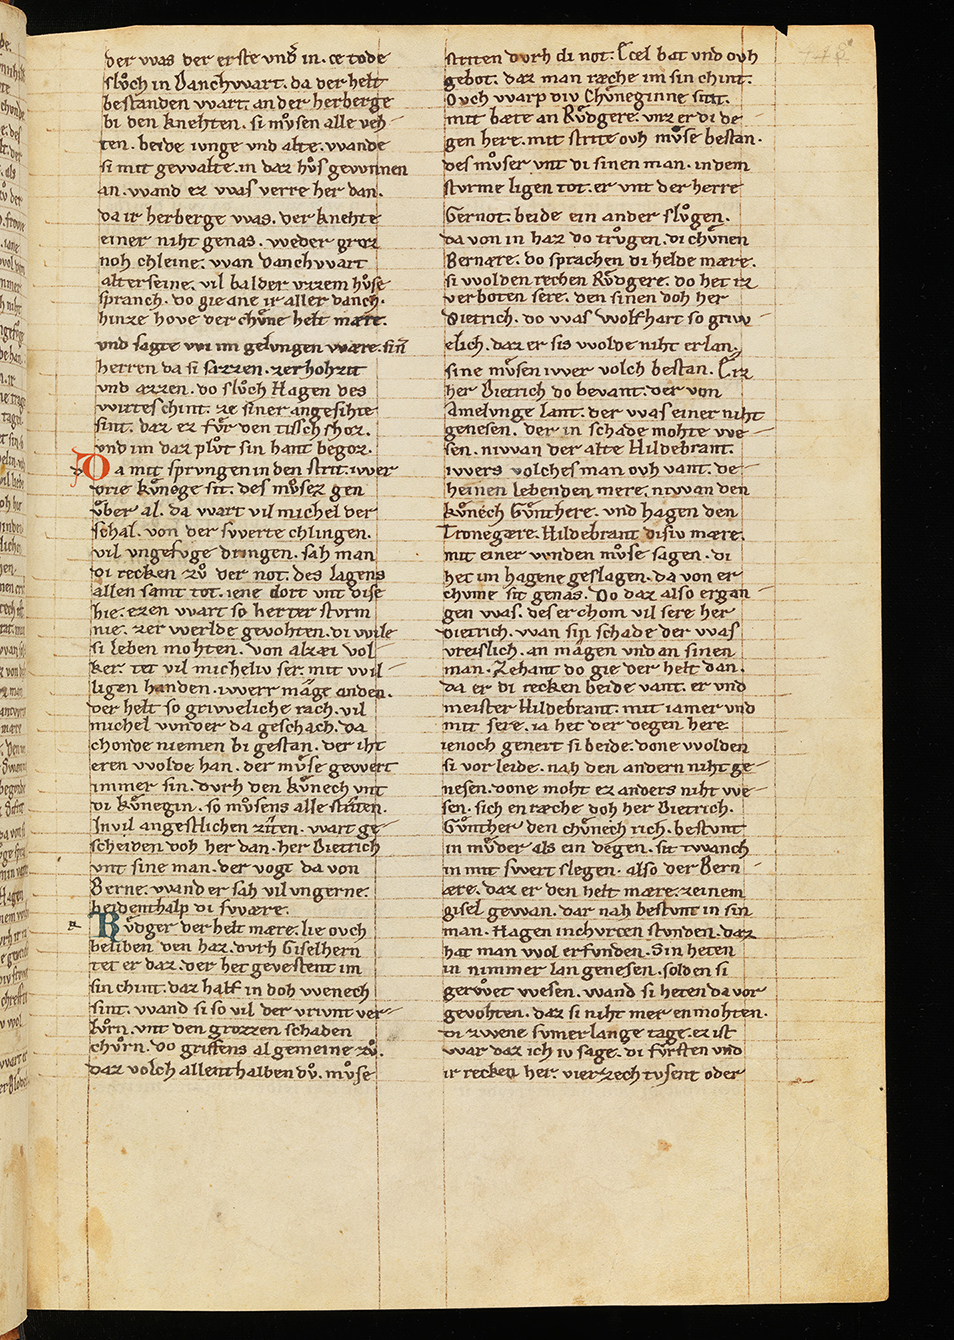 der was der erste vnd᷒ in. ce tode
slůch in Danchwart. da der helt
bestanden wart. an der herberge
bi den knehten. si mvͦsen alle veh
ten. beide ivnge vnd alte. wande
si mit gewalte. in daz hvͦs gewnnen
an. wand ez was verre her dan.
da ir herberge was. der knehte
einer niht genas. weder groz
noh chleine. wan danchwart
alterseine. vil balder vzzem hvͦse
spranch. do gie ane ir aller danch.
hinze hove der chvͤne helt mære.
vnd sagte wi im gelungen wære. sin̄
herren da si sazzen. zer hohzit
vnd azzen. do slůch Hagen des
wirtes chint. ze siner angesihte
sint. daz ez fvͤr den tissch shoz.
vnd im daz plůt sin hant begoz.
Da mit sprvngen in den strit. iwer
drie kvͤnege sit. des mvͦsez gen
vͤber al. da wart vil michel der
schal. von der swerte chlingen.
vil vngefvge dringen. sah man
di recken zvͦ der not. des lagens
allen samt tot. iene dort vnt dise
hie. ezen wart so herter stvrm
nie. zer werlde gevohten. di wile
si leben mohten. von alzæi vol
ker. tet vil micheliv ser. mit wil
ligen handen. iwerr mage anden.
der helt so griweliche rach. vil
michel wnder da geschach. da
chonde niemen bi gestan. der iht
eren wolde han. der mvͤse gewert
immer sin. dvrh den kvͤnech vnt
di kvͤnegin. so mvͦsens alle striten.
In vil angestlichen ziten. wart ge
scheiden doh her dan. her Dietrich
vnt sine man. der vogt da von
Berne. wand er sah vil vngerne.
beidenthalp di swære.
Rvͤdger der helt mære. lie ovch
beliben den haz. dvrh Giselhern
tet er daz. der het gevestent im
sin chint. daz half in doh wenech
sint. wand si so vil der vrivnt ver
lvͦrn. vnt den grozzen schaden
chvͦrn. do griffens al gemeine zvͦ.
daz volch allenthalben dvͦ. mvͦse
striten dvrh di not. Ecel bat vnd ovh
gebot. daz man ræche im sin chint.
Ovch warp div Chvͤneginne sint.
mit bæte an Rvͤdgere. vnz er di de
gen here. mit strite ovh mvͦse bestan.
des mvͦser vnt di sinen man. in dem
stvrme ligen tot. er vnt der herre
Gernot. beide ein ander slvͦgen.
da von in haz do trvͦgen. di chvͤnen
Bernære. do sprachen di helde mære.
si wolden rechen Rvͤdgere. do het iz
verboten sere. den sinen doh her
Dietrich. do was wolfhart so griw
elich. daz er sis wolde niht erlan.
sine mvͤsen iwer volch bestan. Eiz
her Dietrich do bevant. der von
Amelvnge lant. der was einer niht
genesen. der in schade mohte we
sen. niwan der alte Hildebrant.
iwers volches man ovh vant. de
heinen lebenden mere. niwan den
kvͤnech Gvͤnthere. vnd hagen den
Tronegære. Hildebrant disiv mære.
mit einer wnden mvͦse sagen. di
het im hagene geslagen. da von er
chvme sit genas. Do daz also ergan
gen was. des er chom vil sere her
dietrich. wan sin schade der was
vreislich. an magen vnd an sinen
man. Zehant do gie der helt dan.
da er di recken beide vant. er vnd
meister Hildebrant. mit iamer vnd
mit sere. ia het der degen here
ienoch genert si beide. done wolden
si vor leide. nah den andern niht ge
nesen. done moht ez anders niht we
sen. sich en ræche doh her Dietrich.
Gvͤnther den chvͤnech rich. bestvnt
in mvͤder als ein degen. sit twanch
in mit swert slegen. also der Bern
ære. daz er den helt mære. ze einem
gisel gewan. dar nah bestvnt in sin
man. Hagen in chvrcen stvnden. daz
hat man wol erfvnden. Sin heten
in nimmer lan genesen. solden si
gerwͦet wesen. wand si heten da vor
gevohten. daz si niht mer en mohten.
di zwene svmerlange tage. ez ist
war daz ich iv sage. di fvͤrsten vnd
ir recken her. vierzech tvsent oder